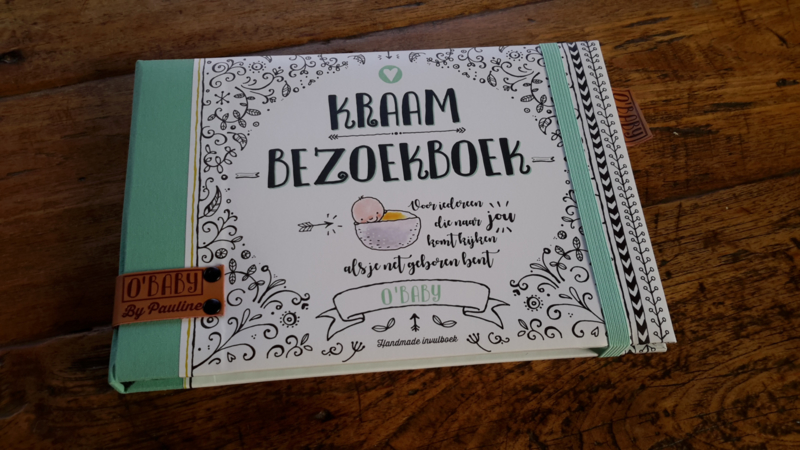 KRAAM
BEZOEKBOEK
Voor iedereen
die naar jou
komt kijken
als je net geboren bent
O'BABY
Handmade invulboek
O'BABY
By Pauline